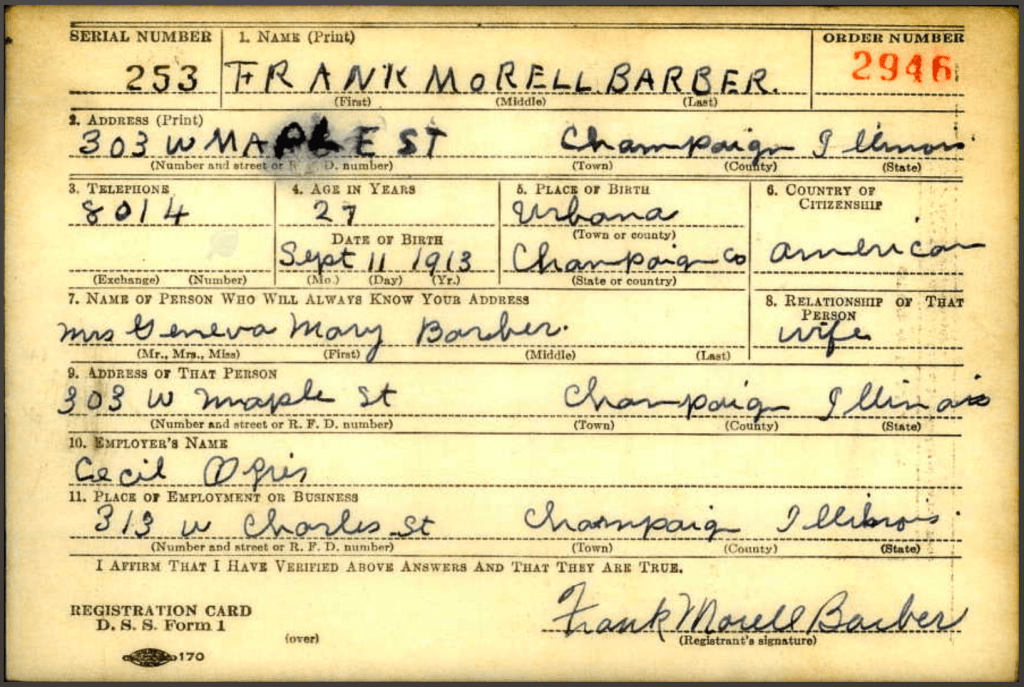 SERIAL NUMBER 1. NAME (Print) ORDER NUMBER
253 FRANK MORELL BARBER. 2946
(First) (Middle) (Last)
2. ADDRESS (Print)
303 W MAPLE ST Champaign Illinois
(Number and street or R. F. D. number) (Town) (County) (State)
3. TELEPHONE 4. AGE IN YEARS 5. PLACE OF BIRTH 6. COUNTRY OF CITIZENSHIP
8014 27 Urbana
(Town or county)
DATE OF BIRTH
Sept 11 1913 Champaign Co american
(Exchange) (Number) (Mo.) (Day) (Yr.) (State or country)
7. NAME OF PERSON WHO WILL ALWAYS KNOW YOUR ADDRESS 8. RELATIONSHIP OF THAT PERSON
Mrs Geneva Mary Barber. wife
(Mr., Mrs., Miss) (First) (Middle) (Last)
9. ADDRESS OF THAT PERSON
303 W Maple St Champaign Illinois
(Number and street or R. F. D. number) (Town) (County) (State)
10. EMPLOYER'S NAME
Cecil
11. PLACE OF EMPLOYMENT OR BUSINESS
313 W Charles St Champaign Illinois
(Number and street or R. F. D. number) (Town) (County) (State)
I AFFIRM THAT I HAVE VERIFIED ABOVE ANSWERS AND THAT THEY ARE TRUE.
REGISTRATION CARD
D. S. S. Form 1
(over)
Frank Morell Barber
(Registrant's signature)
170